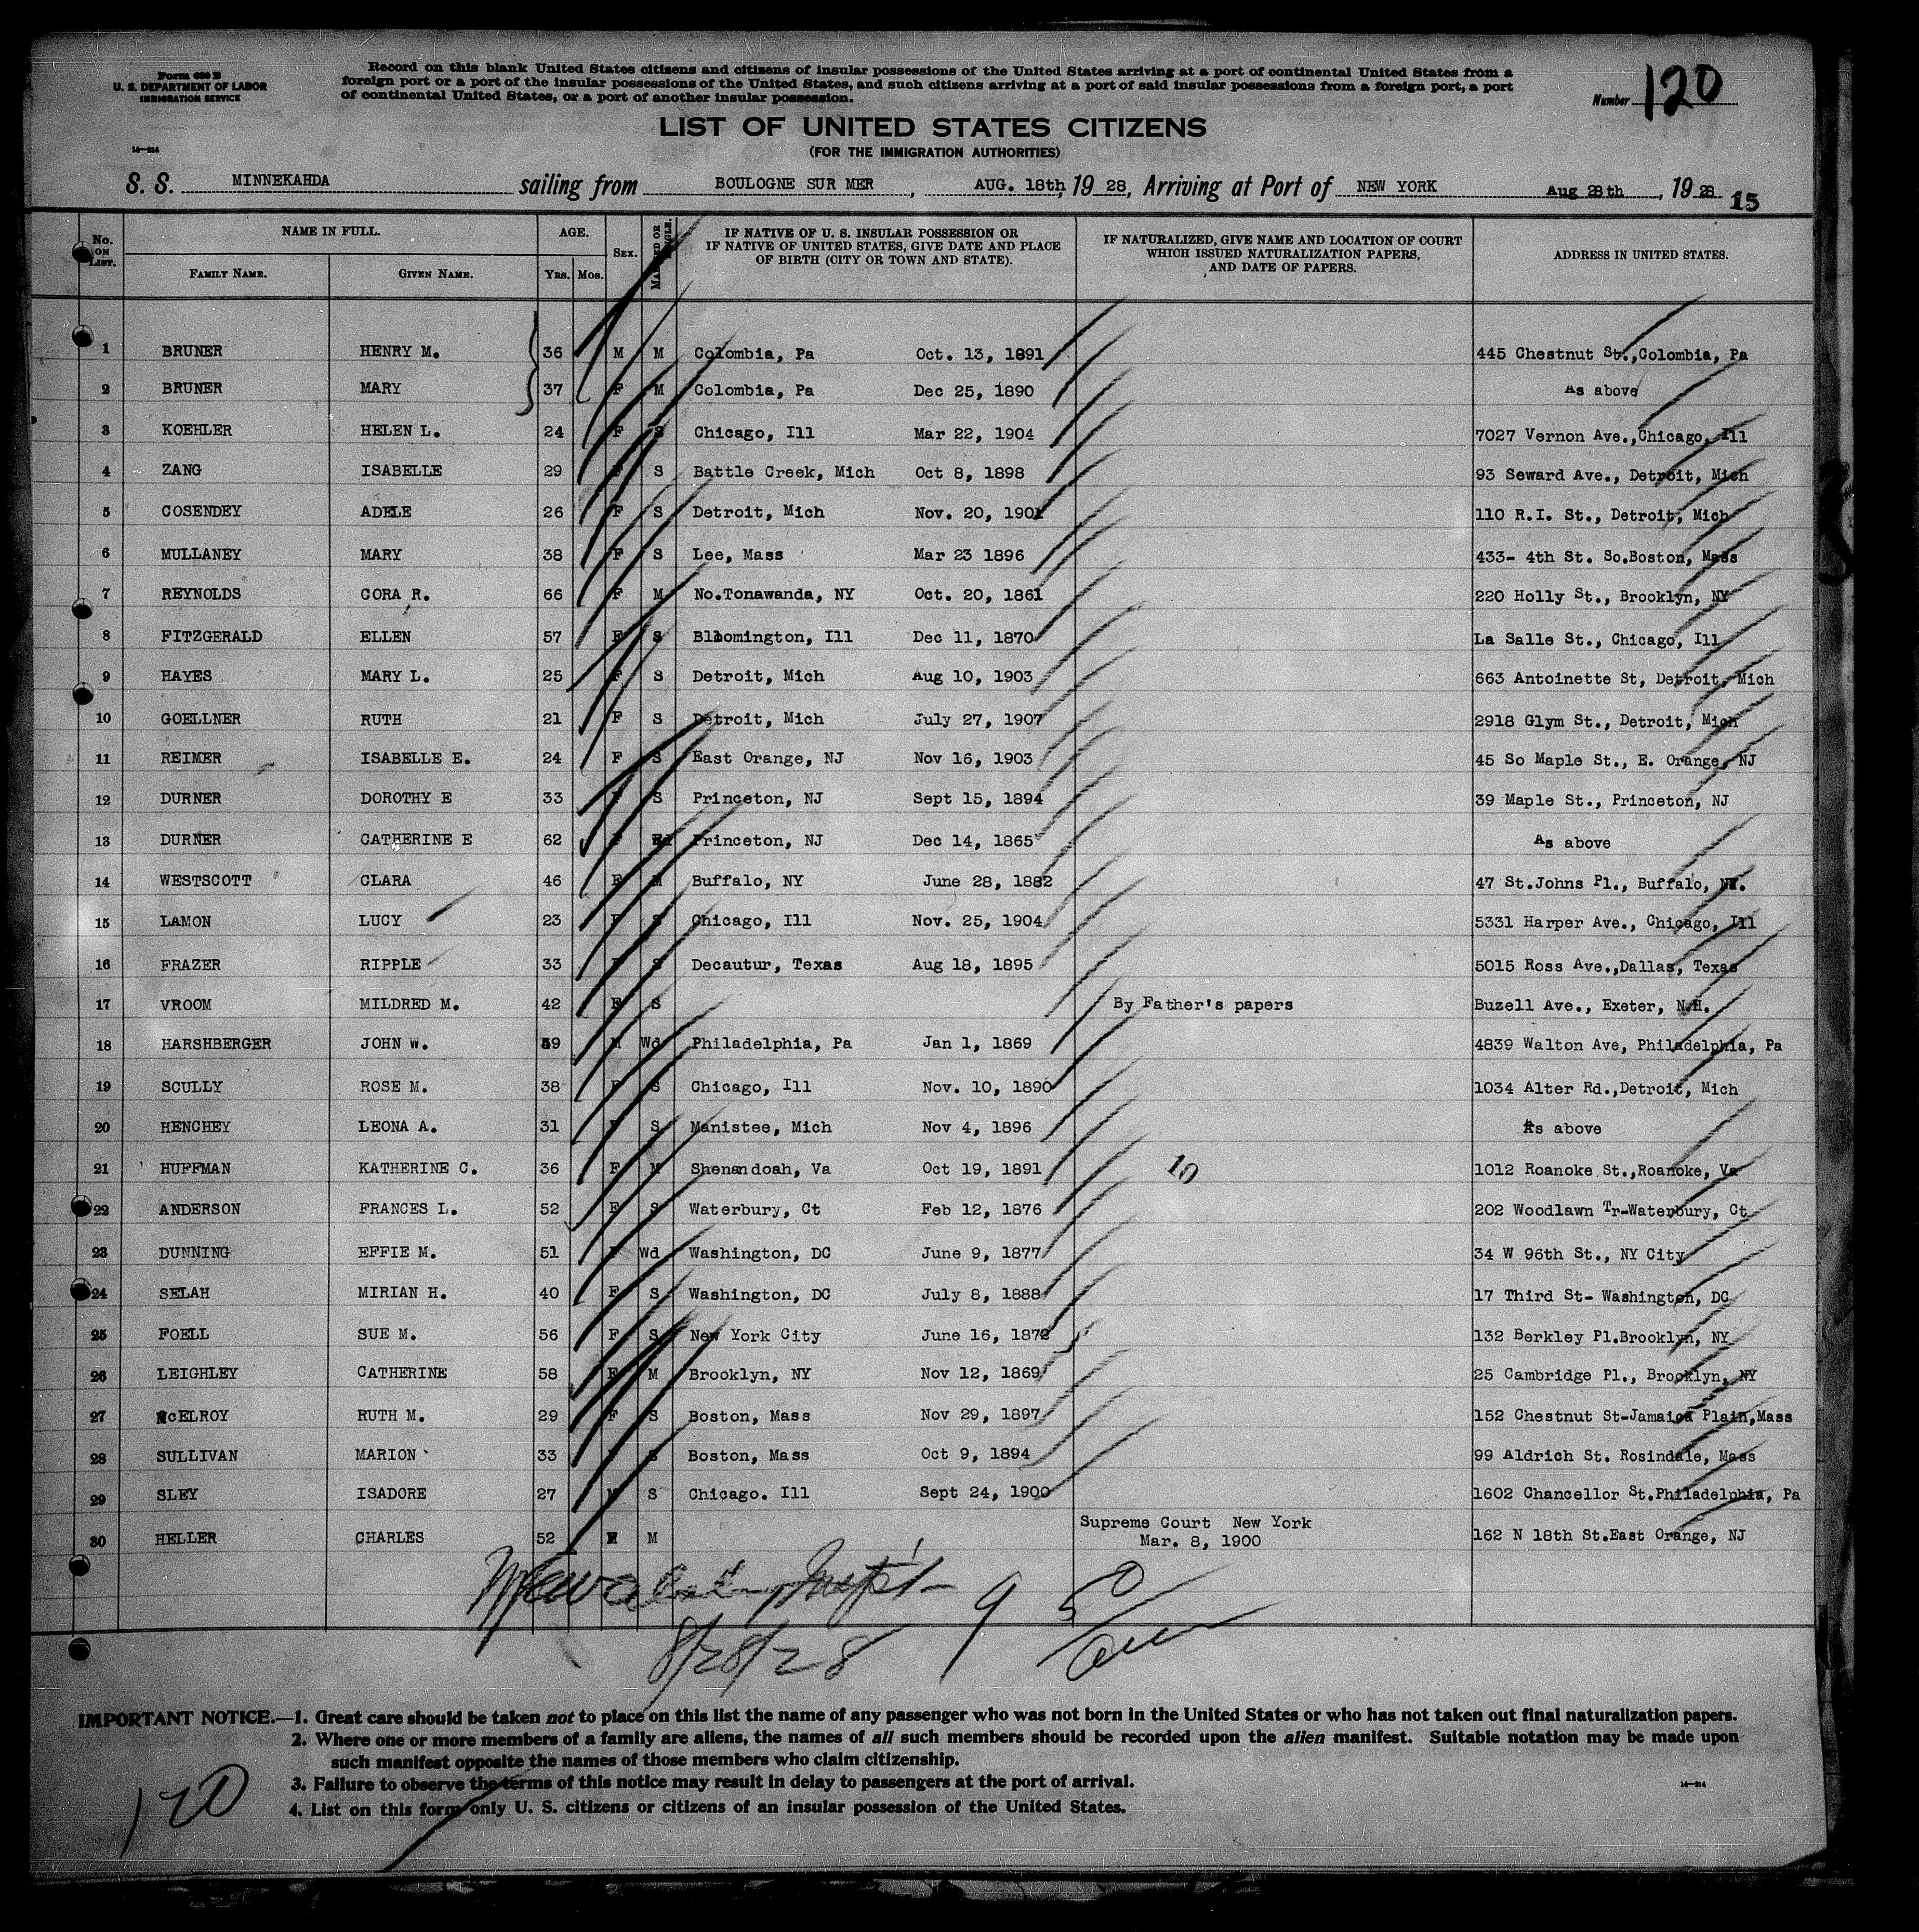 Form 630 B
U. S. DEPARTMENT OF LABOR
IMMIGRATION SERVICE
Record on this blank United States citizens and citizens of insular possessions of the United States arriving at a port of continental United States from a
foreign port or a port of the insular possessions of the United States, and such citizens arriving at a port of said insular possessions from a foreign port, a port
of continental United States, or a port of another insular possession.
Number 120
LIST OF UNITED STATES CITIZENS
(FOR THE IMMIGRATION AUTHORITIES)
14—214
S. S. MINNEKAHDA sailing from BOULOGNE SUR MER, AUG. 18th, 19 28, Arriving at Port of NEW YORK Aug 28th, 19 28
15
No. ON LIST. NAME IN FULL. AGE. SEX. MARRIED OR SINGLE. IF NATIVE OF U. S. INSULAR POSSESSION OR IF NATIVE OF UNITED STATES, GIVE DATE AND PLACE OF BIRTH (CITY OR TOWN AND STATE). IF NATURALIZED, GIVE NAME AND LOCATION OF COURT WHICH ISSUED NATURALIZATION PAPERS, AND DATE OF PAPERS. ADDRESS IN UNITED STATES.
FAMILY NAME. GIVEN NAME. YRS. MOS.
1 BRUNER HENRY M. 36 M M Colombia, Pa Oct. 13, 1891 445 Chestnut St.,Colombia, Pa
2 BRUNER MARY 37 F M Colombia, Pa Dec 25, 1890 As above
3 KOEHLER HELEN L. 24 F S Chicago, Ill Mar 22, 1904 7027 Vernon Ave.,Chicago, Ill
4 ZANG ISABELLE 29 F S Battle Creek, Mich Oct 8, 1898 93 Seward Ave., Detroit, Mich
5 COSENDEY ADELE 26 F S Detroit, Mich Nov. 20, 1901 110 R.I. St., Detroit, Mich
6 MULLANEY MARY 38 F S Lee, Mass Mar 23 1896 433- 4th St. So.Boston, Mass
7 REYNOLDS CORA R. 66 F M No.Tonawanda, NY Oct. 20, 1861 220 Holly St., Brooklyn, NY
8 FITZGERALD ELLEN 57 F S Bloomington, Ill Dec 11, 1870 La Salle St., Chicago, Ill
9 HAYES MARY L. 25 F S Detroit, Mich Aug 10, 1903 663 Antoinette St, Detroit, Mich
10 GOELLNER RUTH 21 F S Detroit, Mich July 27, 1907 2918 Glym St., Detroit, Mich
11 REIMER ISABELLE E. 24 F S East Orange, NJ Nov 16, 1903 45 So Maple St., E. Orange, NJ
12 DURNER DOROTHY E 33 F S Princeton, NJ Sept 15, 1894 39 Maple St., Princeton, NJ
13 DURNER CATHERINE E 62 F Wd Princeton, NJ Dec 14, 1865 As above
14 WESTSCOTT CLARA 46 F M Buffalo, NY June 28, 1882 47 St.Johns Pl., Buffalo, NY.
15 LAMON LUCY 23 F S Chicago, Ill Nov. 25, 1904 5331 Harper Ave., Chicago, Ill
16 FRAZER RIPPLE 33 F S Decautur, Texas Aug 18, 1895 5015 Ross Ave.,Dallas, Texas
17 VROOM MILDRED M. 42 F S By Father's papers Buzell Ave., Exeter, N.H.
18 HARSHBERGER JOHN W. 59 M Wd Philadelphia, Pa Jan 1, 1869 4839 Walton Ave, Philadelphia, Pa
19 SCULLY ROSE M. 38 F S Chicago, Ill Nov. 10, 1890 1034 Alter Rd.,Detroit, Mich
20 HENCHEY LEONA A. 31 F S Manistee, Mich Nov 4, 1896 As above
21 HUFFMAN KATHERINE C. 36 F M Shenandoah, Va Oct 19, 1891 10 1012 Roanoke St.,Roanoke, Va
22 ANDERSON FRANCES L. 52 F S Waterbury, Ct Feb 12, 1876 202 Woodlawn Tr-Waterbury, Ct
23 DUNNING EFFIE M. 51 F Wd Washington, DC June 9, 1877 34 W 96th St., NY City
24 SELAH MIRIAN H. 40 F S Washington, DC July 8, 1888 17 Third St- Washington, DC
25 FOELL SUE M. 56 F S New York City June 16, 1872 132 Berkley Pl.Brooklyn, NY
26 LEIGHLEY CATHERINE 58 F M Brooklyn, NY Nov 12, 1869 25 Cambridge Pl., Brooklyn, NY
27 McELROY RUTH M. 29 F S Boston, Mass Nov 29, 1897 152 Chestnut St-Jamaica Plain,Mass
28 SULLIVAN MARION 33 F S Boston, Mass Oct 9, 1894 99 Aldrich St. Rosindale, Mass
29 SLEY ISADORE 27 M S Chicago. Ill Sept 24, 1900 1602 Chancellor St.Philadelphia, Pa
30 HELLER CHARLES 52 M M Supreme Court New York Mar. 8, 1900 162 N 18th St.East Orange, NJ
8/28/28
IMPORTANT NOTICE.—1. Great care should be taken not to place on this list the name of any passenger who was not born in the United States or who has not taken out final naturalization papers.
2. Where one or more members of a family are aliens, the names of all such members should be recorded upon the alien manifest. Suitable notation may be made upon
such manifest opposite the names of those members who claim citizenship.
3. Failure to observe the terms of this notice may result in delay to passengers at the port of arrival.
14—214
4. List on this form only U. S. citizens or citizens of an insular possession of the United States.
120